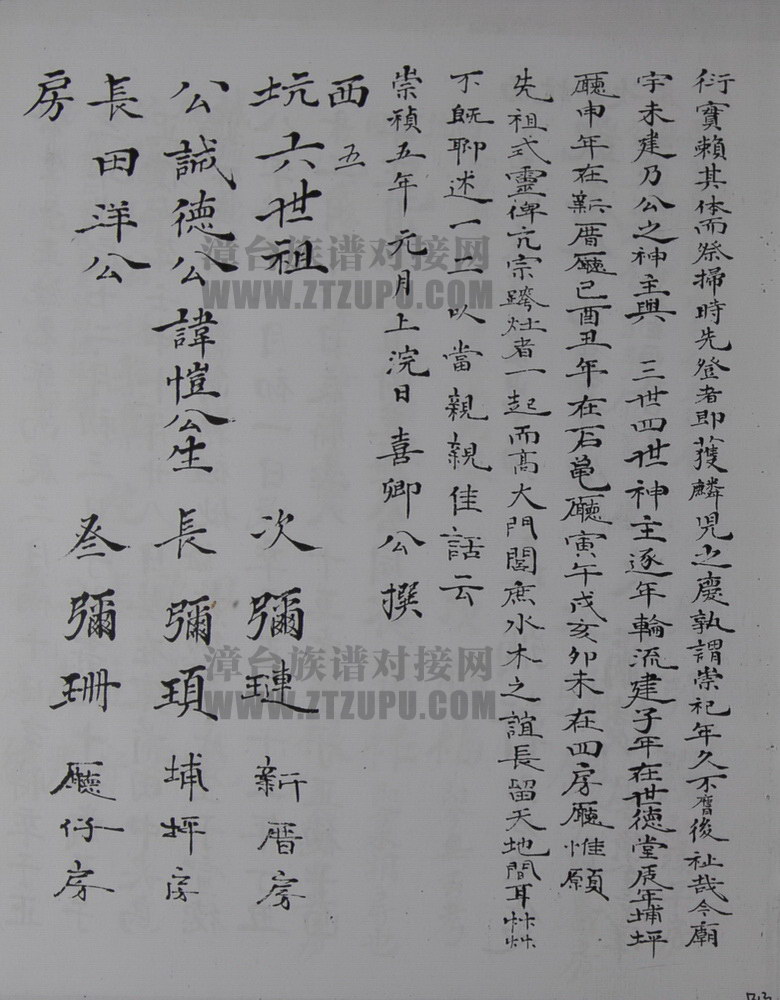 衍實賴其体而祭掃時先登者即獲麟児之慶孰謂崇祀年久不奮後祉哉今廟
宇未建乃公之神主與 三世四世神主逐年輪流建子年在世德堂辰年埔坪
廳申年在新厝廳巳酉丑年在石龟廳寅午戌亥卯未在四房廳惟願
先祖式靈俾亢宗跨灶者一起而高大門閭庶水木之誼長留天地間耳艸艸
不既聊述一二以當親親佳話云
崇禎五年元月上浣日喜卿公撰
西 五
坑六世祖 次彌璉 新厝房
公誠德公諱愷公生 長彌頊 埔坪房
長田洋公 叁彌珊 廳仔房
房
漳台族谱对接网
WWW.ZTZUPU.COM
漳台族谱对接网
WWW.ZTZUPU.COM